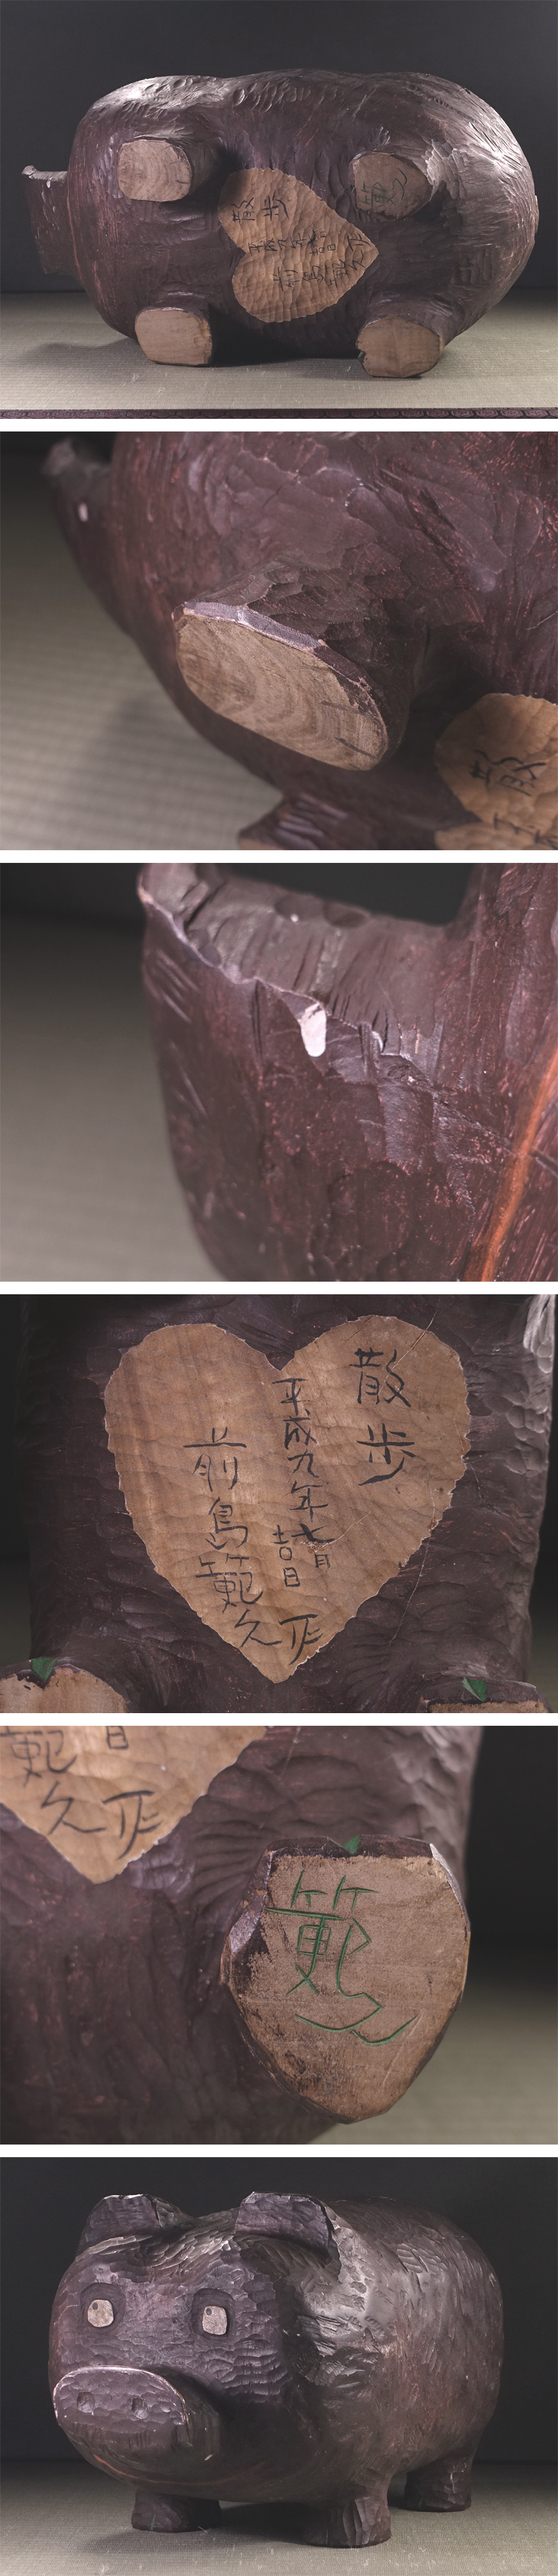 散歩
平成九年七月
吉日
前島範久作
範久